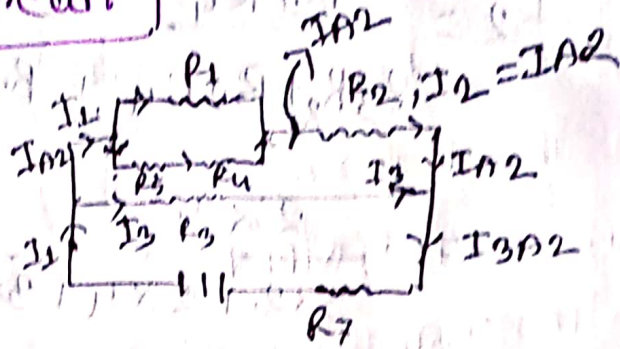 IA2
R1
R2, I2 = IA2
I1
IA2
R5 R4
I3 IA2
I3 R3
I1 I3A2
R7